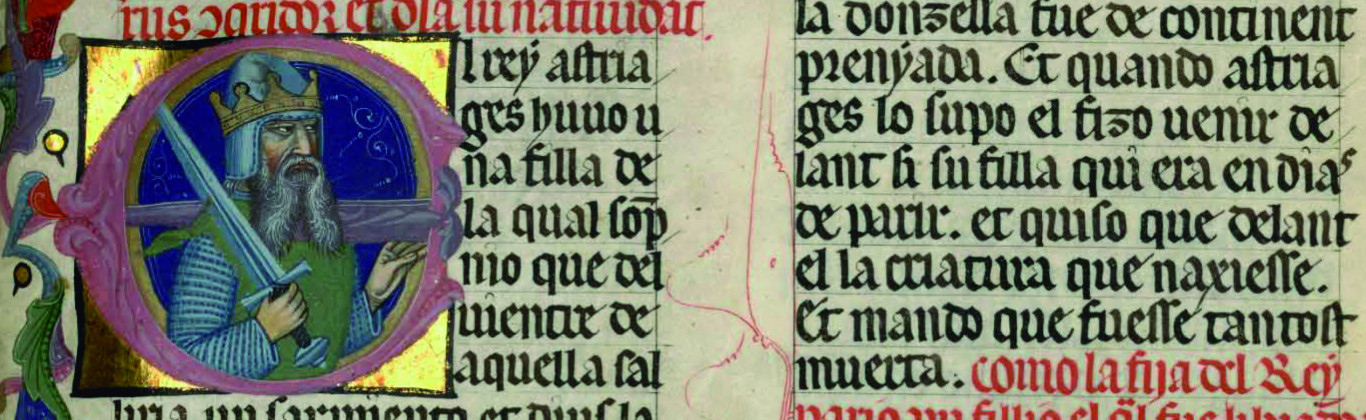 rus ꝛ gridor et dla su natiuidat.
l rey astria
ges huuo u
na filla de
la qual sop̄
nio que del
uientre de
aquella sal
la donzella fue de continent
prenyada. Et quando astria
ges lo supo el fizo uenir de
lant si su filla qui era en dias
de parir. et quiso que delant
el la criatura que naxiesse.
Et mando que fuesse tantost
muerta. como la fija del Rey